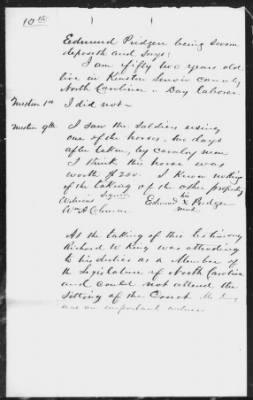 10th
Edmund Pridgen being sworn
deposeth and says:
I am fifty two years old
live in Kinston Lenoir county
North Carolina - Day laborer.
Question 1st I did not -
Question 9th I saw the soldiers using
one of the horses, two days
after taken, by cavalry men
I think the horse was
worth $200. I know nothing
of the taking of the other property
Witness Signed his
Wm A Coleman Edmund X Pridgen
mark
At the taking of this testimony
Richard W King was attending
to his duties as a Member of
the Legislature of North Carolina
and could not attend the
sitting of the Court
was an important witness